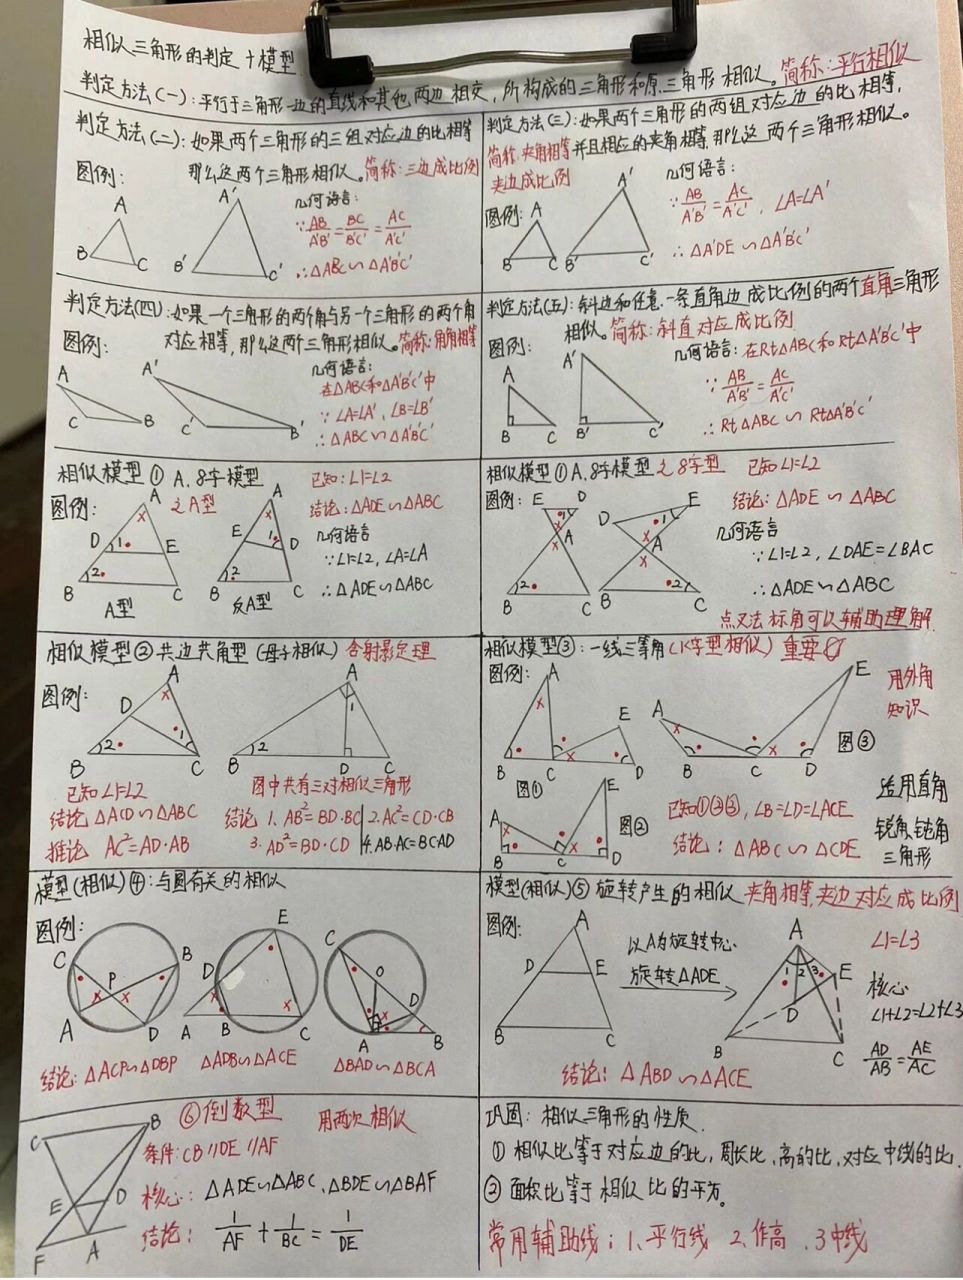 相似三角形的判定十模型
判定方法(一):平行于三角形一边的直线和其他两边相交,所构成的三角形和原三角形相似。简称:平行相似
判定方法(二):如果两个三角形的三组对应边的比相等
那么这两个三角形相似。简称:三边成比例
图例:
几何语言:
A
B
C
A'
B'
C'
∵AB/A'B'=BC/B'C'=AC/A'C'
∴△ABC∽△A'B'C'
判定方法(三):如果两个三角形的两组对应边的比相等,
简称:夹角相等并且相应的夹角相等,那么这两个三角形相似。
夹边成比例
图例:
几何语言:
A
B
C
A'
B'
C'
∵AB/A'B'=AC/A'C',∠A=∠A'
∴△A'DE∽△A'B'C'
判定方法(四):如果一个三角形的两个角与另一个三角形的两个角
对应相等,那么这两个三角形相似。简称:角角相等
图例:
几何语言:
A
C
B
A'
C'
B'
在△ABC和△A'B'C'中
∵∠A=∠A',∠B=∠B'
∴△ABC∽△A'B'C'
判定方法(五):斜边和任意一条直角边成比例的两个直角三角形
相似。简称:斜直对应成比例
图例:
几何语言:在Rt△ABC和Rt△A'B'C'中
A
B
C
A'
B'
C'
∵AB/A'B'=AC/A'C'
∴Rt△ABC∽Rt△A'B'C'
相似模型①A、8字模型
之A型
图例:
A
D
1
E
B
2
C
A型
A
E
1
D
B
2
C
反A型
已知:∠1=∠2
结论:△ADE∽△ABC
几何语言
∵∠1=∠2,∠A=∠A
∴△ADE∽△ABC
相似模型①A、8字模型之8字型 已知∠1=∠2
图例:
E
D
1
A
2
B
C
D
E
1
A
2
B
C
结论:△ADE∽△ABC
几何语言
∵∠1=∠2,∠DAE=∠BAC
∴△ADE∽△ABC
点叉法标角可以辅助理解
相似模型②共边共角型(母子相似)含射影定理
图例:
A
D
1
2
B
C
A
1
2
B
D
C
已知∠1=∠2
结论△ACD∽△ABC
推论 AC²=AD·AB
图中共有三对相似三角形
结论 1.AB²=BD·BC 2.AC²=CD·CB
3.AD²=BD·CD 4.AB·AC=BC·AD
相似模型③:一线三等角(K字型相似)重要
图例:
A
E
B
C
D
图①
A
B
C
D
E
图③
用外角
知识
A
B
C
D
E
图②
已知①②③,∠B=∠D=∠ACE
结论:△ABC∽△CDE
适用直角
锐角,钝角
三角形
模型(相似)④:与圆有关的相似
图例:
C
B
P
A
D
E
D
A
B
C
C
O
D
A
B
结论:△ACP∽△DBP △ADB∽△ACE △BAD∽△BCA
模型(相似)⑤旋转产生的相似 夹角相等,夹边对应成比例
图例:
A
D
E
B
C
以A为旋转中心
旋转△ADE
A
1
2
3
E
D
B
C
∠1=∠3
核心
∠1+∠2=∠2+∠3
AD/AB=AE/AC
结论:△ABD∽△ACE
⑥倒数型 用两次相似
C
B
E
D
F
A
条件:CB∥DE∥AF
核心:△ADE∽△ABC、△BDE∽△BAF
结论:1/AF+1/BC=1/DE
巩固:相似三角形的性质.
①相似比等于对应边的比,周长比,高的比,对应中线的比.
②面积比等于相似比的平方。
常用辅助线:1、平行线 2、作高、3中线